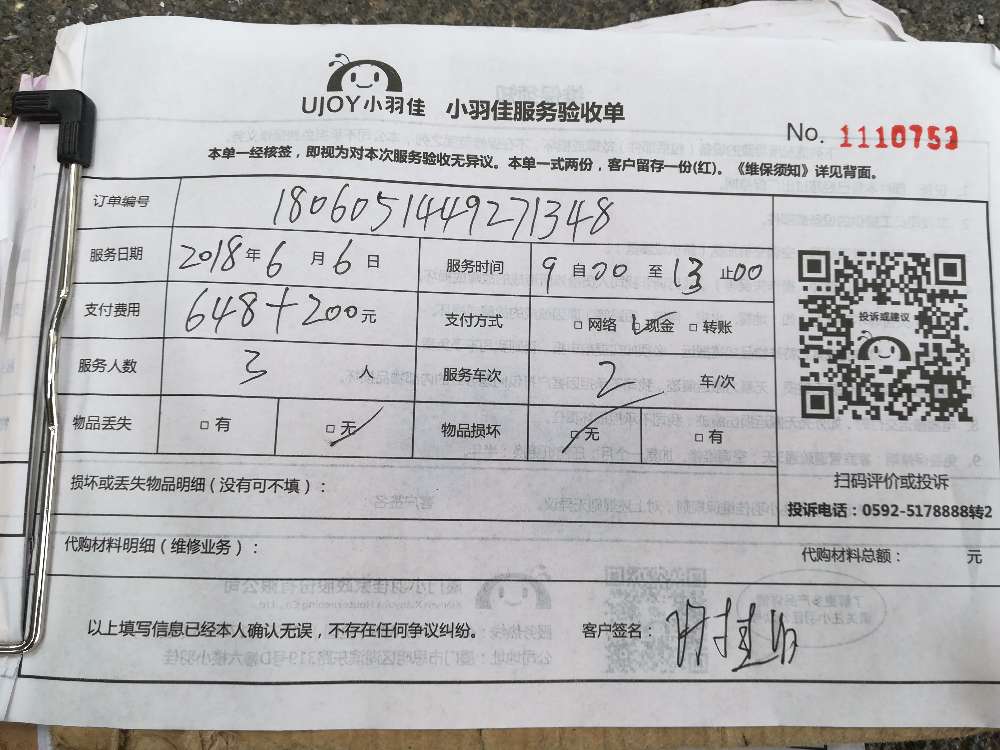 UJOY小羽佳 小羽佳服务验收单
No. 1110753
本单一经核签，即视为对本次服务验收无异议。本单一式两份，客户留存一份(红)。《维保须知》详见背面。
订单编号 1806051449271348
服务日期 2018年6月6日 服务时间 9自00至13止00
支付费用 648+200元 支付方式 □网络 □现金 □转账
投诉或建议
服务人数 3人 服务车次 2车/次
物品丢失 □有 □无 物品损坏 □无 □有
扫码评价或投诉
损坏或丢失物品明细（没有可不填）：
投诉电话：0592-5178888转2
代购材料明细（维修业务）： 代购材料总额： 元
以上填写信息已经本人确认无误，不存在任何争议纠纷。 客户签名：